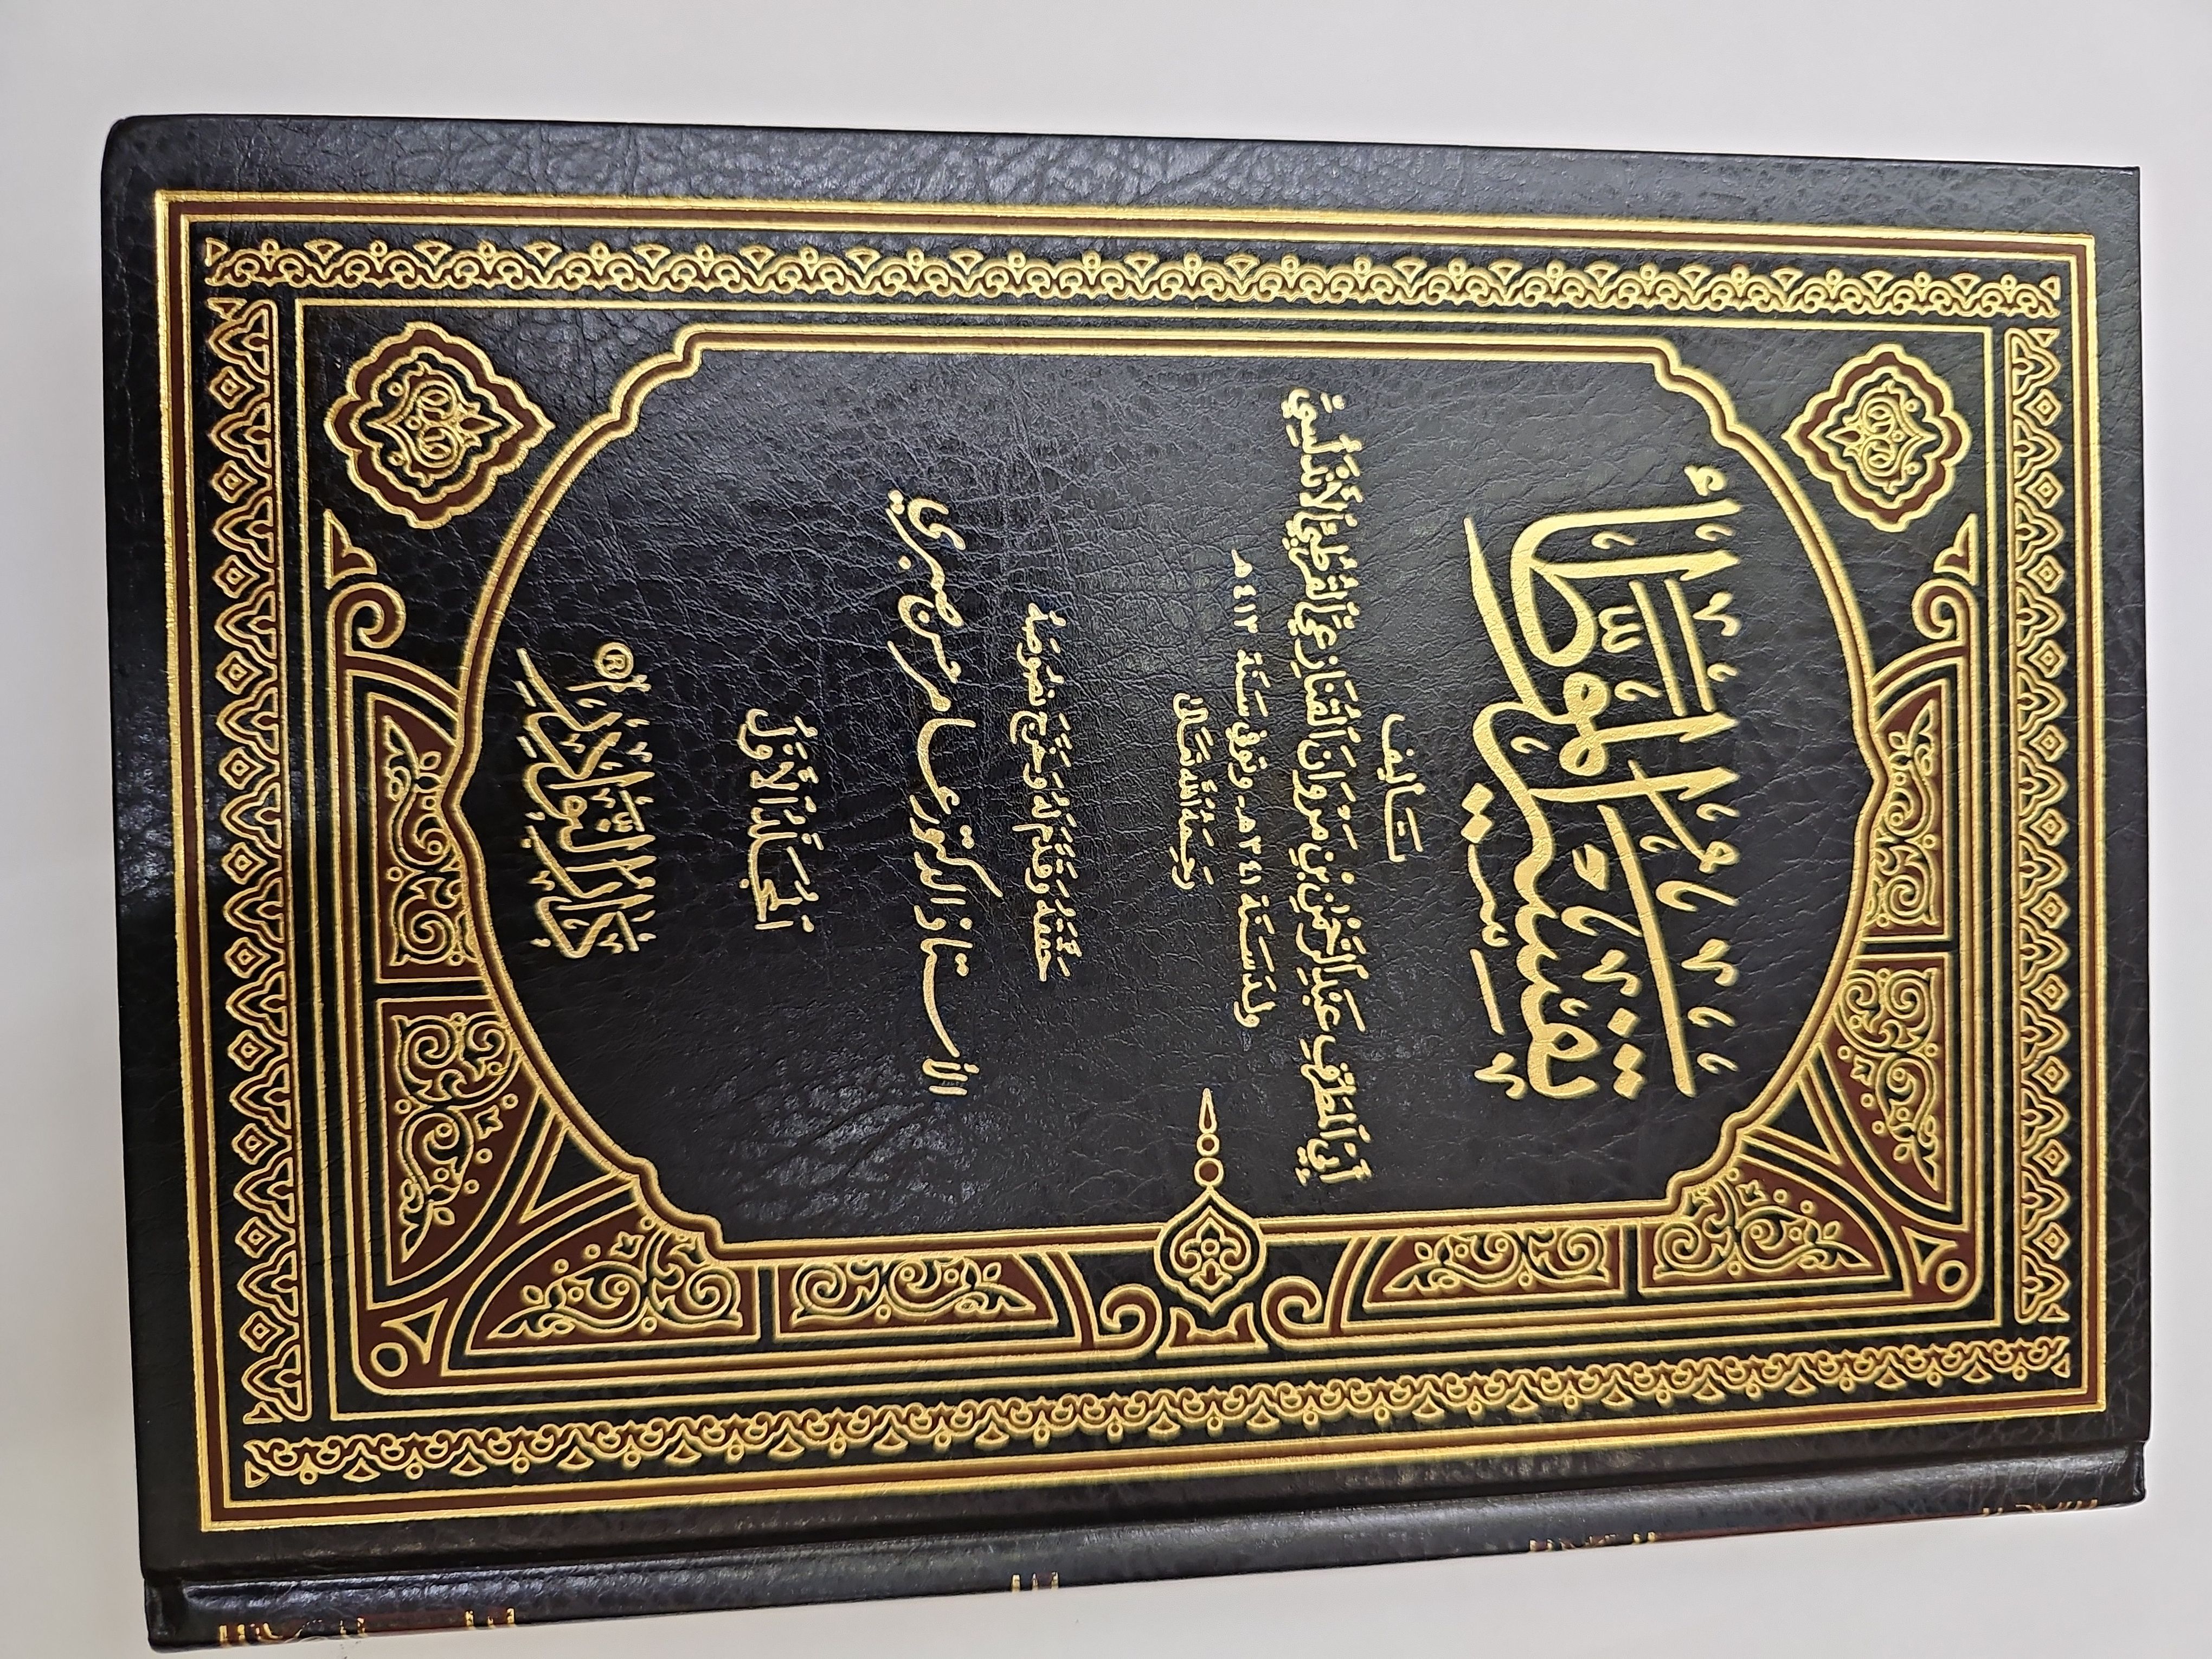 تَفْسِيرُ المُوَطَّأ
تَأليفُ
أَبِي المُطَرِّفِ عَبْدِ الرَّحْمٰنِ بْنِ مَرْوَانَ القَنَازِعِيِّ القُرْطُبِيِّ الأَنْدَلُسِيِّ
وُلِدَ سَنَةَ ٣٤١هـ - وتوفي سَنَةَ ٤١٣هـ
رَحِمَهُ اللهُ تَعَالَى
حَقَّقَهُ وَقَدَّمَ لَهُ وَخَرَّجَ نُصُوصَهُ
الأستاذ الدكتور عامر حسن صبري
المُجَلَّدُ الأَوَّلُ
دَارُ النَّوَادِرِ ®